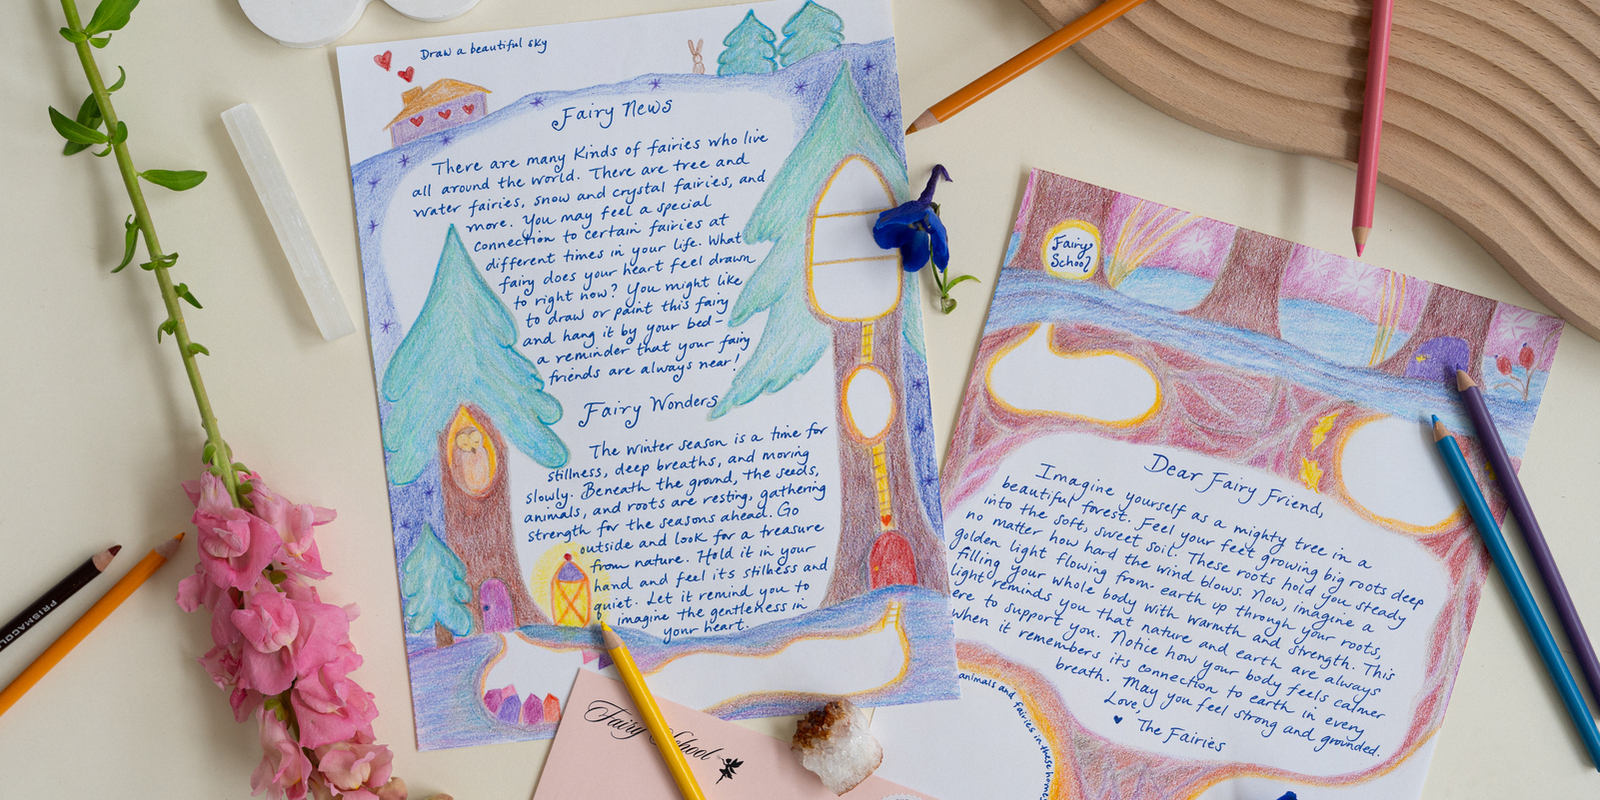 Draw a beautiful sky
Fairy News
There are many kinds of fairies who live
all around the world. There are tree and
water fairies, snow and crystal fairies, and
more. You may feel a special
connection to certain fairies at
different times in your life. What
fairy does your heart feel drawn
to right now? You might like
to draw or paint this fairy
and hang it by your bed-
a reminder that your fairy
friends are always near!
Fairy Wonders
The winter season is a time for
stillness, deep breaths, and moving
slowly. Beneath the ground, the seeds,
animals, and roots are resting, gathering
strength for the seasons ahead. Go
outside and look for a treasure
from nature. Hold it in your
hand and feel its stillness and
quiet. Let it remind you to
imagine the gentleness in
your heart.
Fairy
School
Dear Fairy Friend,
Imagine yourself as a mighty tree in a
beautiful forest. Feel your feet growing big roots deep
into the soft, sweet soil. These roots hold you steady
no matter how hard the wind blows. Now, imagine a
golden light flowing from earth up through your roots,
filling your whole body with warmth and strength. This
light reminds you that nature and earth are always
ere to support you. Notice how your body feels calmer
when it remembers its connection to earth in every
breath. May you feel strong and grounded.
Love,
The Fairies
animals and fairies in these homes
Fairy School
PRISMACOL